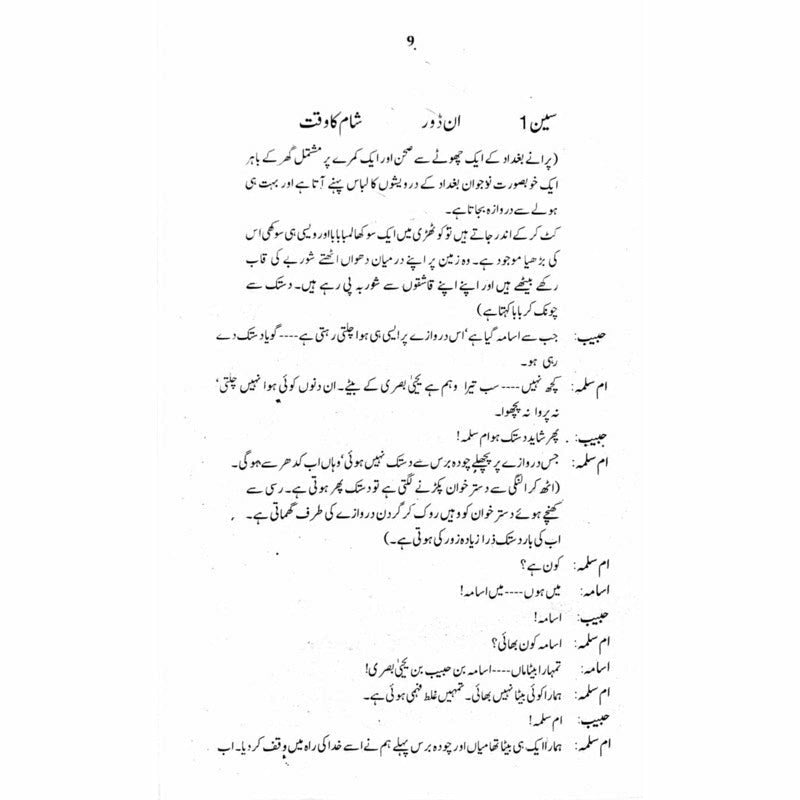 9
سین 1 ان ڈور شام کا وقت
(پرانے بغداد کے ایک چھوٹے سے صحن اور ایک کمرے پر مشتمل گھر کے باہر
ایک خوبصورت نوجوان بغداد کے درویشوں کا لباس پہنے آتا ہے اور بہت ہی
ہولے سے دروازہ بجاتا ہے۔
کٹ کر کے اندر جاتے ہیں تو کوٹھڑی میں ایک سوکھا لمبا بابا اور ویسی ہی سوکھی اس
کی بڑھیا موجود ہے۔ وہ زمین پر اپنے درمیان دھواں اٹھتے شوربے کی قاب
رکھے بیٹھے ہیں اور اپنے اپنے قاشقوں سے شوربہ پی رہے ہیں۔ دستک سے
چونک کر بابا کہتا ہے)
حبیب: جب سے اسامہ گیا ہے‘ اس دروازے پر ایسی ہی ہوا چلتی رہتی ہے---- گویا دستک دے
رہی ہو۔
ام سلمہ: کچھ نہیں---- سب تیرا وہم ہے یحییٰ بصری کے بیٹے۔ ان دنوں کوئی ہوا نہیں چلتی‘
نہ پروا نہ پچھوا۔
حبیب: پھر شاید دستک ہو ام سلمہ!
ام سلمہ: جس دروازے پر پچھلے چودہ برس سے دستک نہیں ہوئی‘ وہاں اب کدھر سے ہو گی۔
(اٹھ کر الگنی سے دستر خوان پکڑنے لگتی ہے تو دستک پھر ہوتی ہے۔ رسی سے
کھنچے ہوئے دستر خوان کو وہیں روک کر گردن دروازے کی طرف گھماتی ہے۔
اب کی بار دستک ذرا زیادہ زور کی ہوتی ہے۔)
ام سلمہ: کون ہے؟
اسامہ: میں ہوں---- میں اسامہ!
حبیب: اسامہ!
ام سلمہ: اسامہ کون بھائی؟
اسامہ: تمہارا بیٹا ماں---- اسامہ بن حبیب بن یحییٰ بصری!
ام سلمہ: ہمارا کوئی بیٹا نہیں بھائی۔ تمہیں غلط فہمی ہوئی ہے۔
حبیب: ام سلمہ!
ام سلمہ: ہمارا ایک ہی بیٹا تھا میاں اور چودہ برس پہلے ہم نے اسے خدا کی راہ میں وقف کر دیا۔ اب